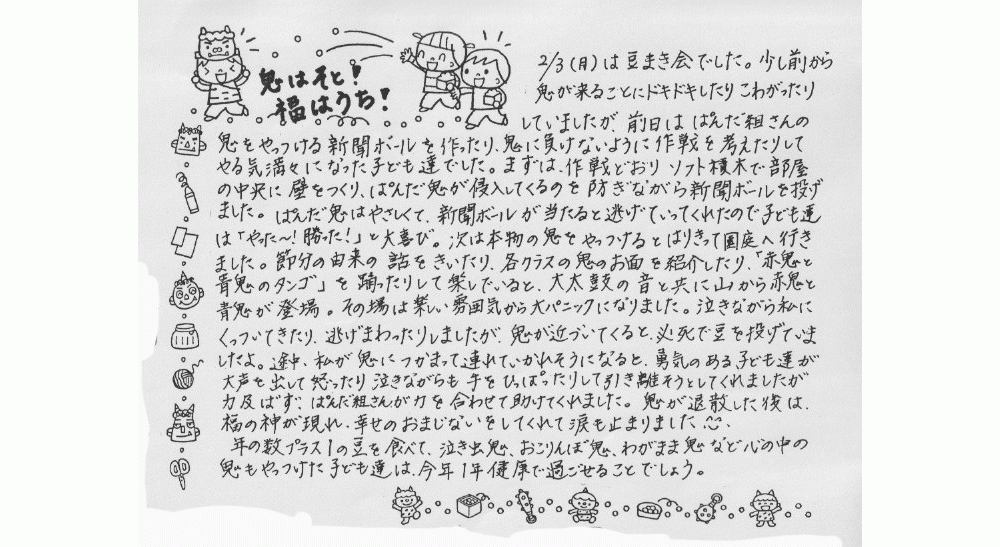 鬼はそと!
福はうち!
2/3(月)は豆まき会でした。少し前から
鬼が来ることにドキドキしたり こわがったり
していましたが、前日は ぱんだ組さんの
鬼をやっつける新聞ボールを作ったり、鬼に負けないように作戦を考えたりして
やる気満々になった子ども達でした。まずは、作戦どおり ソフト積木で部屋
の中央に 壁をつくり、ぱんだ鬼が侵入してくるのを 防ぎながら新聞ボールを投げ
ました。ぱんだ鬼はやさしくて、新聞ボールが当たると逃げていってくれたので子ども達
は「やった〜!勝った!」と大喜び。次は本物の鬼をやっつけるとはりきって園庭へ行き
ました。節分の由来の話をきいたり、各クラスの鬼のお面を紹介したり、「赤鬼と
青鬼のタンゴ」を踊ったりして楽しんでいると、大太鼓の音と共に山から赤鬼と
青鬼が登場。その場は楽しい雰囲気から大パニックになりました。泣きながら私に
くっついてきたり、逃げまわったりしましたが、鬼が近づいてくると、必死で豆を投げていま
したよ。途中、私が鬼につかまって連れていかれそうになると、勇気のある子ども達が
大声を出して怒ったり 泣きながらも手をひっぱったりして引き離そうとしてくれましたが
力及ばず、ぱんだ組さんが力を合わせて助けてくれました。鬼が退散した後は、
福の神が現れ、幸せのおまじないをしてくれて涙も止まりました。
年の数プラス1の豆を食べて、泣き虫鬼、おこりんぼ鬼、わがまま鬼など心の中の
鬼もやっつけた子ども達は、今年1年健康で過ごせることでしょう。